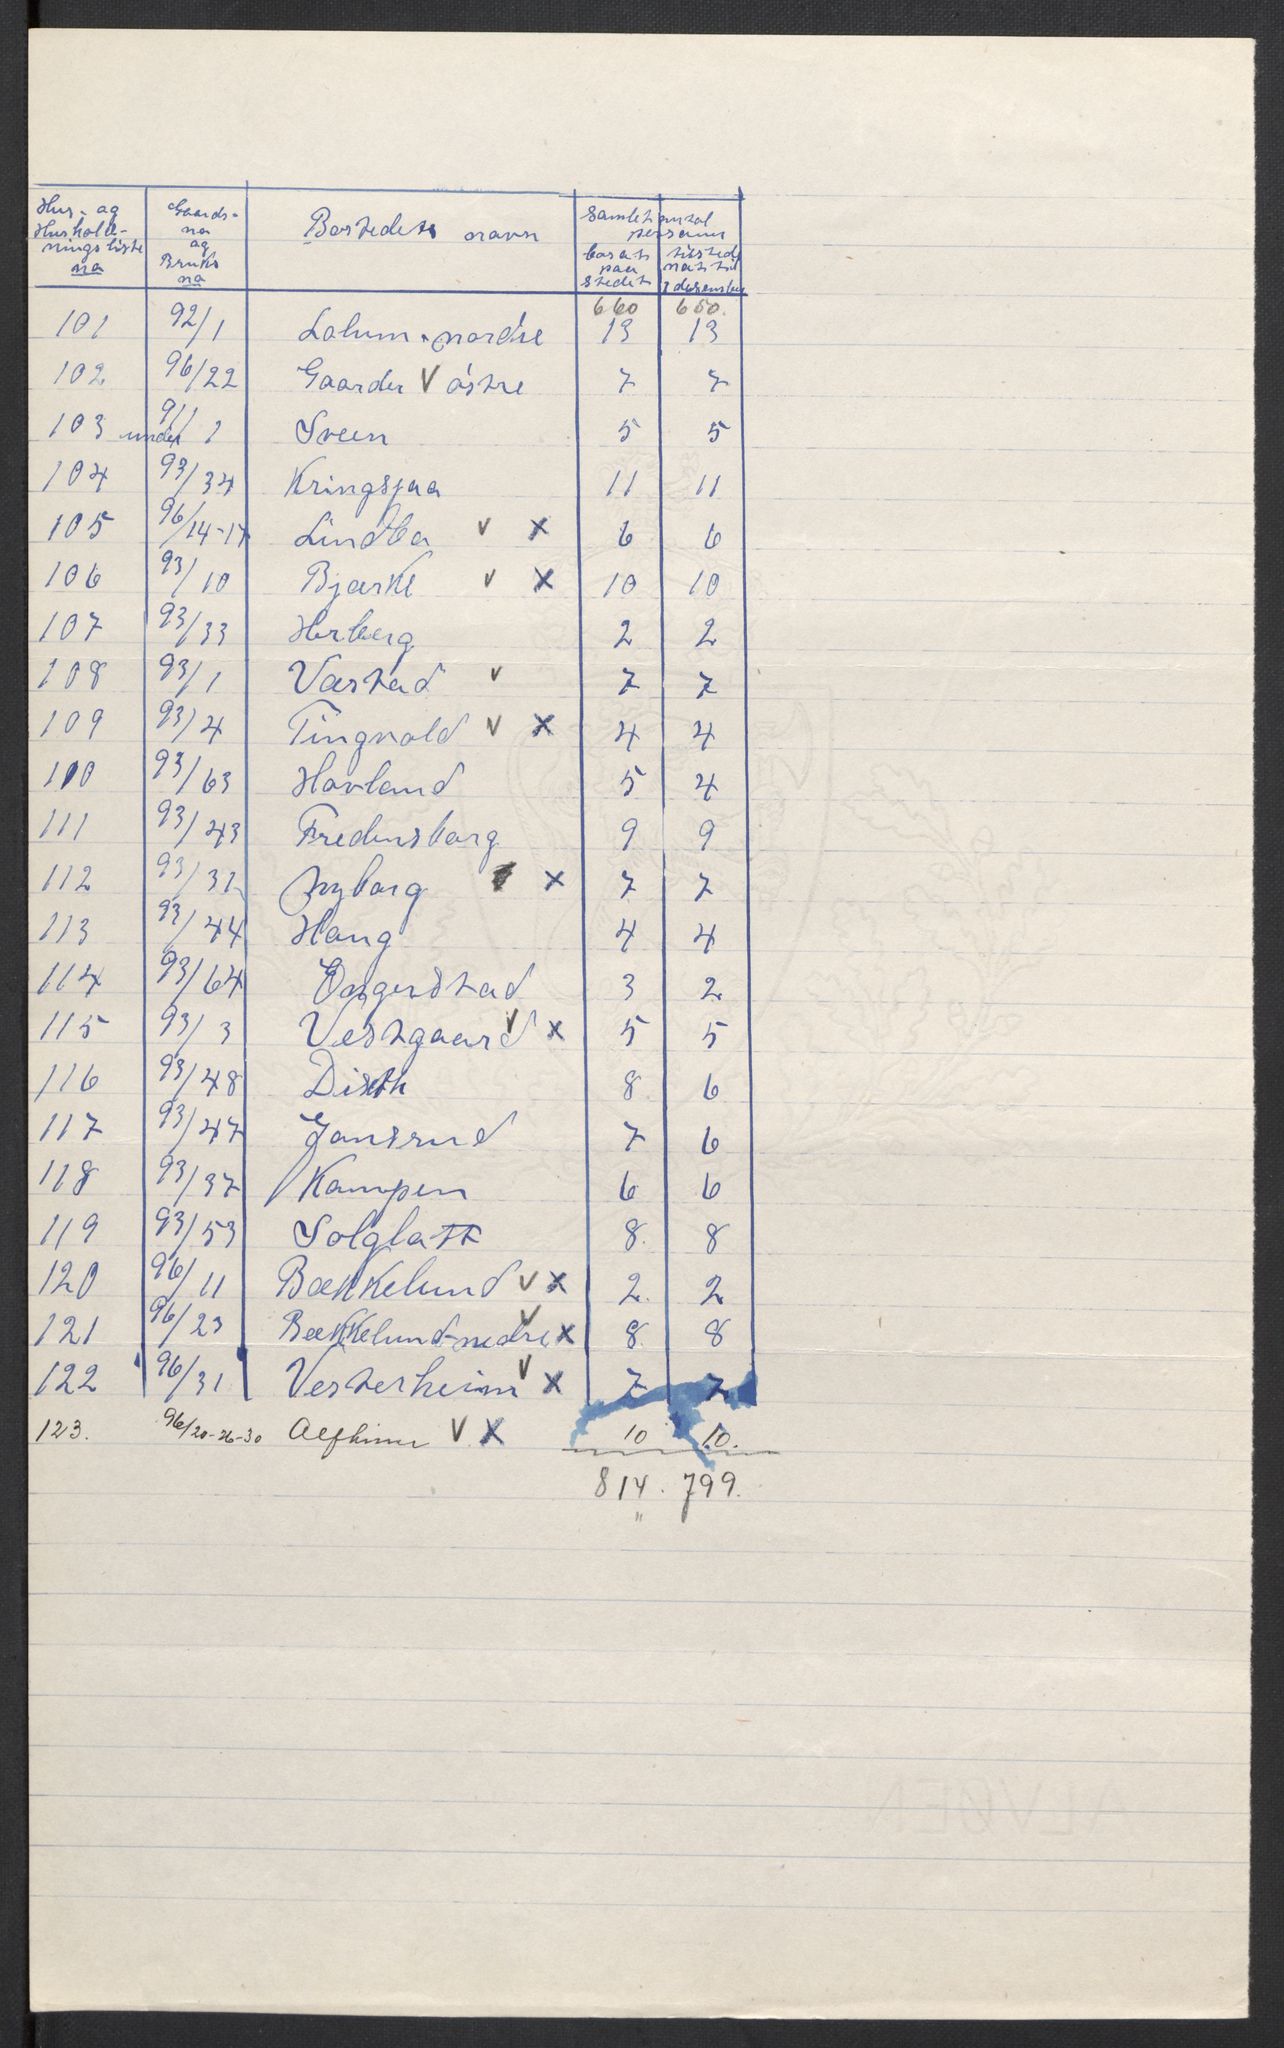 Hus- og Husholdningsliste no | Gaards- no og Bruks no | Bostedets navn | Samlet antal personer bosat paa stedet | tilstede nat til 1 desember
660 650.
101 92/1 Lolum nordre 13 13
102 96/22 Gaarder V østre 7 7
103 under 91/1 Sveen 5 5
104 93/34 Kringsjaa 11 11
105 96/14-17 Lindbo V X 6 6
106 93/10 Bjerke V X 10 10
107 93/33 Herberg 2 2
108 93/1 Vestad V 7 7
109 93/4 Tingvold V X 4 4
110 93/63 Hovland 5 4
111 93/43 Fredensborg 9 9
112 93/31 Nyborg X 7 7
113 93/44 Haug 4 4
114 93/64 Engerstad 3 2
115 93/3 Vestgaard V X 5 5
116 93/48 Diseth 8 6
117 93/47 Jonsrud 7 6
118 93/37 Kampen 6 6
119 93/53 Solglatt 8. 8
120 96/11 Bækkelund V X 2. 2
121 96/23 Bækkelund-nedre V X 8. 8
122 96/31 Vesterheim V X 7 7
123. 96/20-26-30 Alfheim V X 10 10.
814. 799.
ALVØEN